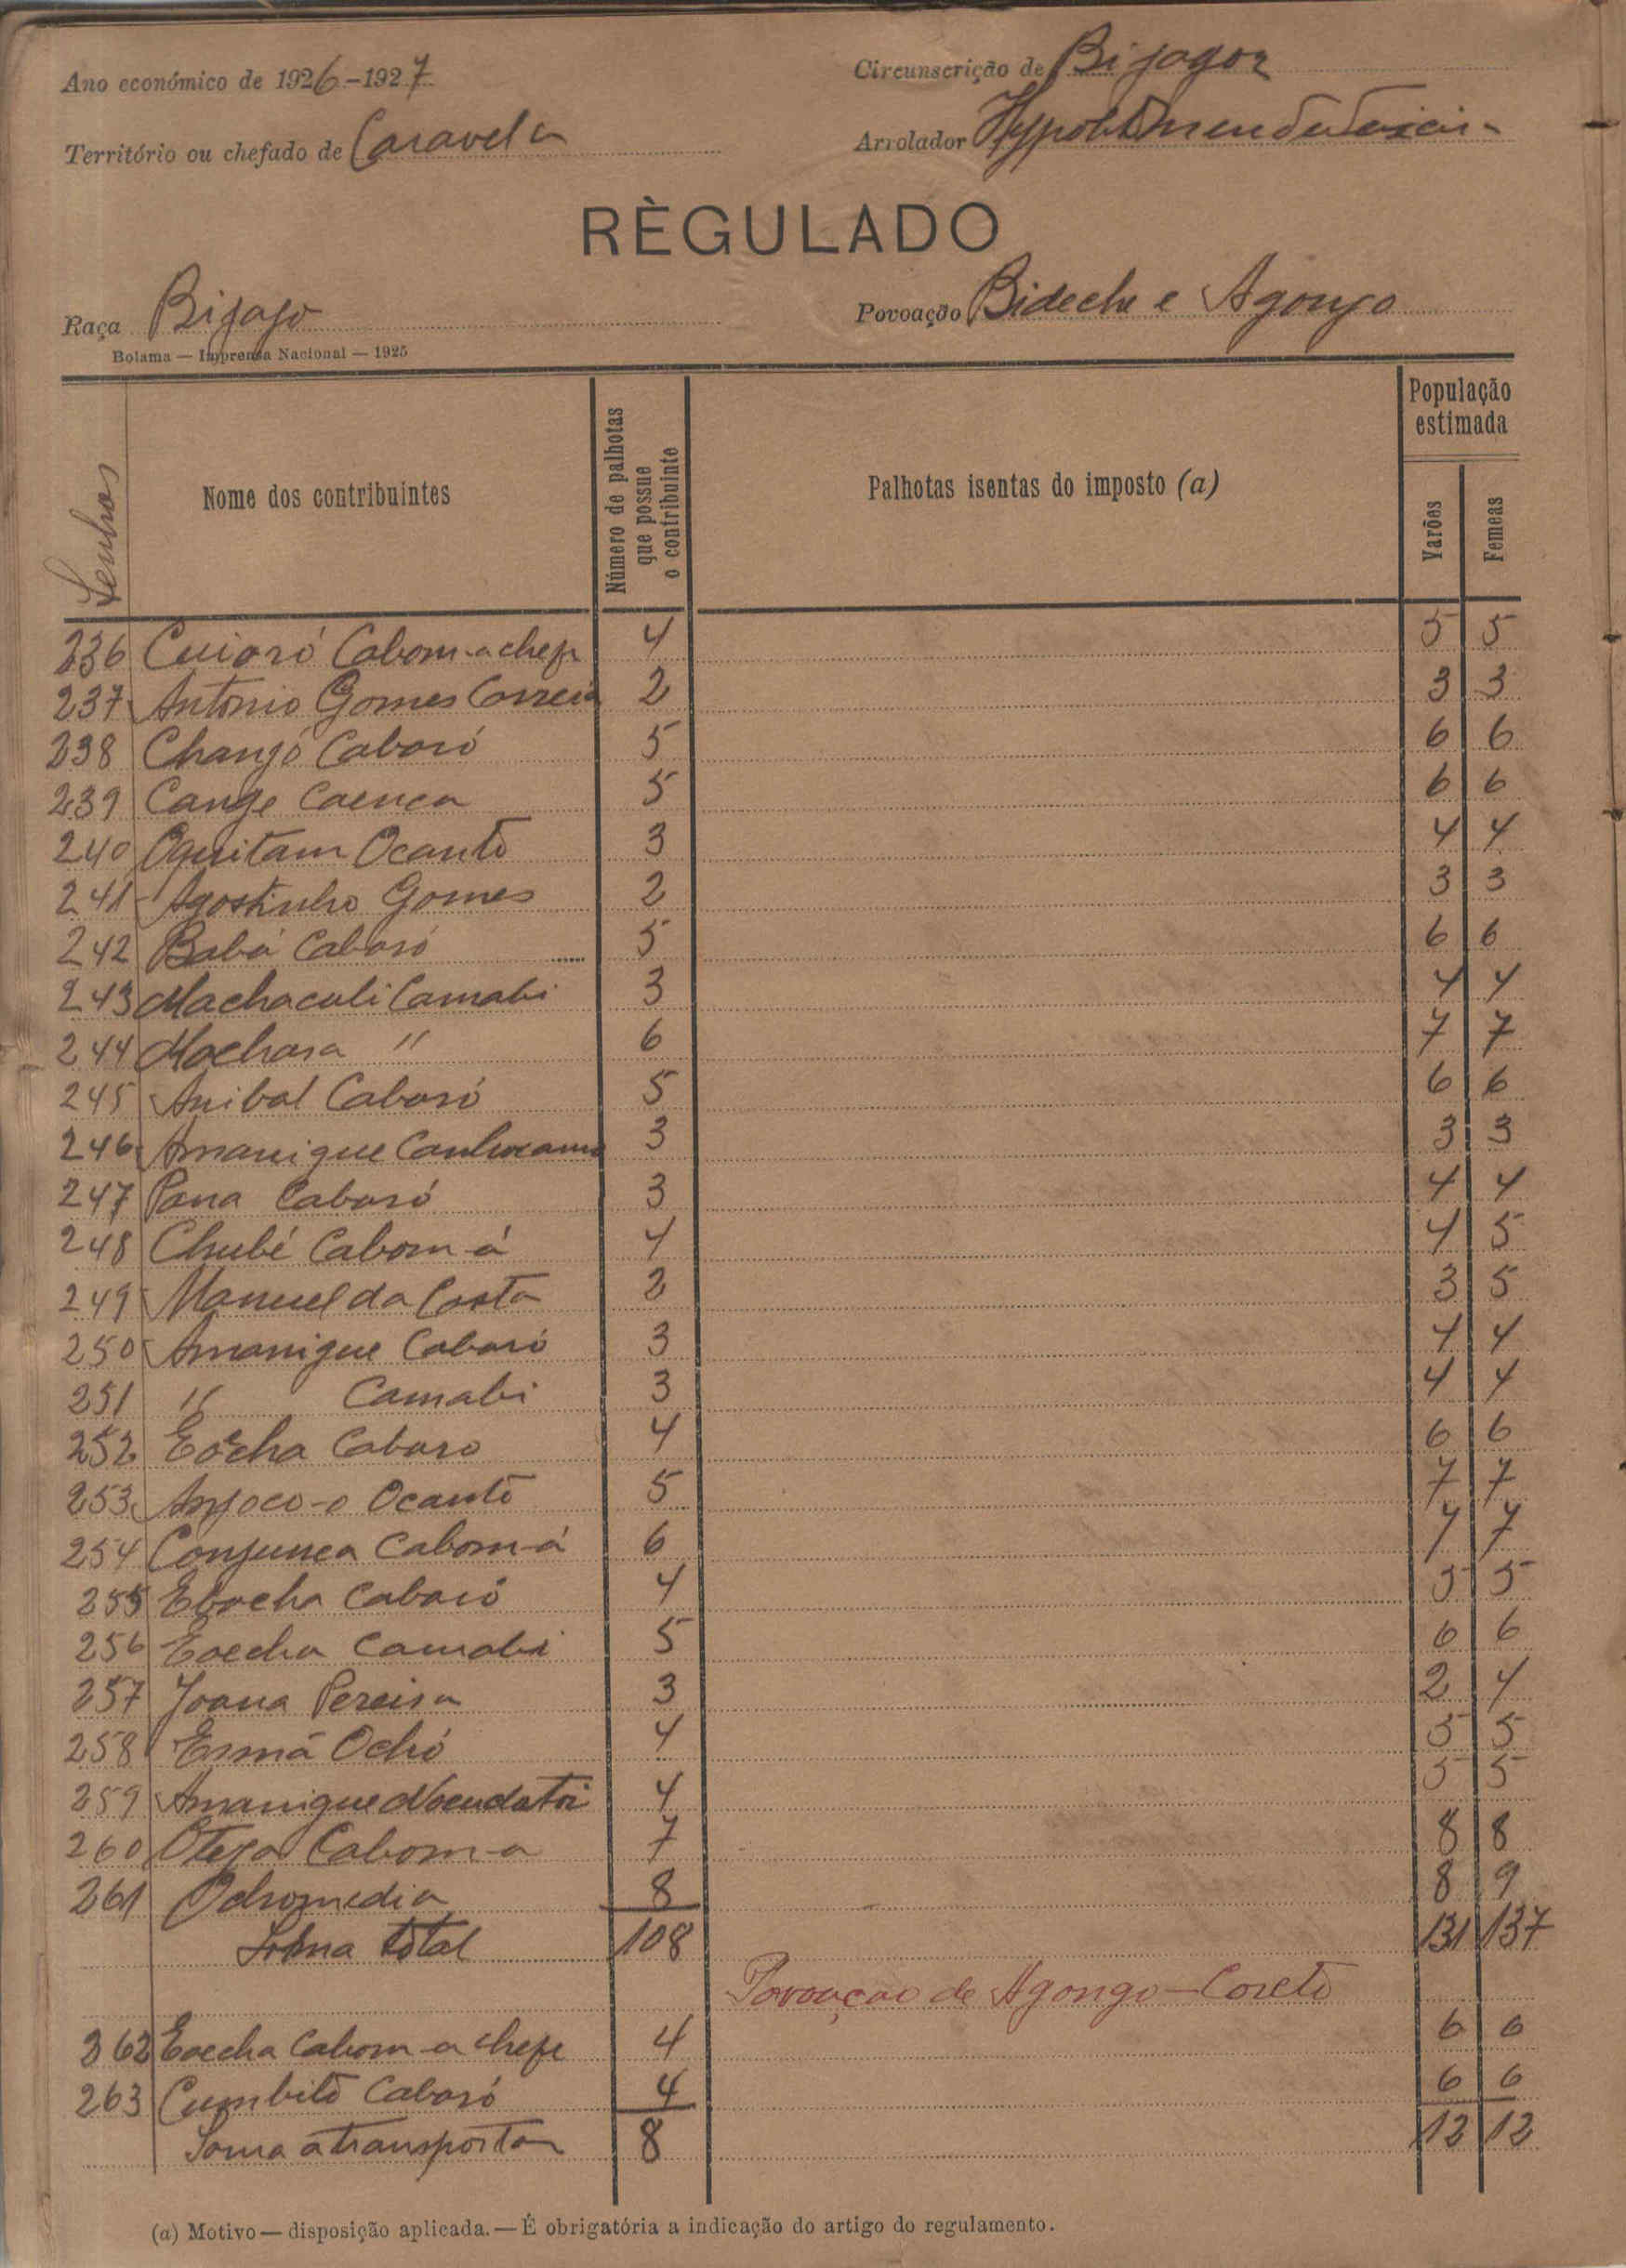 Ano económico de 1926-1927
Circunscrição de Bijagoz
Território ou chefado de Caravela
Arrolador
RÈGULADO
Raça Bijago
Povoação Bideche e Agongo
Bolama — Imprensa Nacional — 1925
Senhas
Nome dos contribuintes
Número de palhotas que possue o contribuinte
Palhotas isentas do imposto (a)
População estimada
Varões
Femeas
236 Cuioró Cabom-a chefe 4 5 5
237 Antonio Gomes Correia 2 3 3
238 Chanjó Caboró 5 6 6
239 Cange Caenca 5 6 6
240 Oquitam Ocantó 3 4 4
241 Agostinho Gomes 2 3 3
242 Babá Caboró 5 6 6
243 Machaculi Camabi 3 4 4
244 Mochara " 6 7 7
245 Anibal Caboró 5 6 6
246 Amanique 3 3 3
247 Pana Caboró 3 4 4
248 Chubé Cabom-á 4 4 5
249 Manuel da Costa 2 3 5
250 Amanique Caboró 3 4 4
251 " Camabi 3 4 4
252 Eocha Caboro 4 6 6
253 Anjoco-o Ocantó 5 7 7
254 Conjunca Cabom-á 6 7 7
255 Ebocha Caboró 4 5 5
256 Eoecha Camabi 5 6 6
257 Joana Pereira 3 2 4
258 Esmã Ochó 4 5 5
259 Amanique 4 5 5
260 Oteja Cabom-a 7 8 8
261 Ochomedia 8 8 9
Soma total 108 131 137
Povoação de Agongo-Coreto
262 Eoecha Cabom-a chefe 4 6 6
263 Cumbitó Caboró 4 6 6
Soma a transportar 8 12 12
(a) Motivo — disposição aplicada. — É obrigatória a indicação do artigo do regulamento.